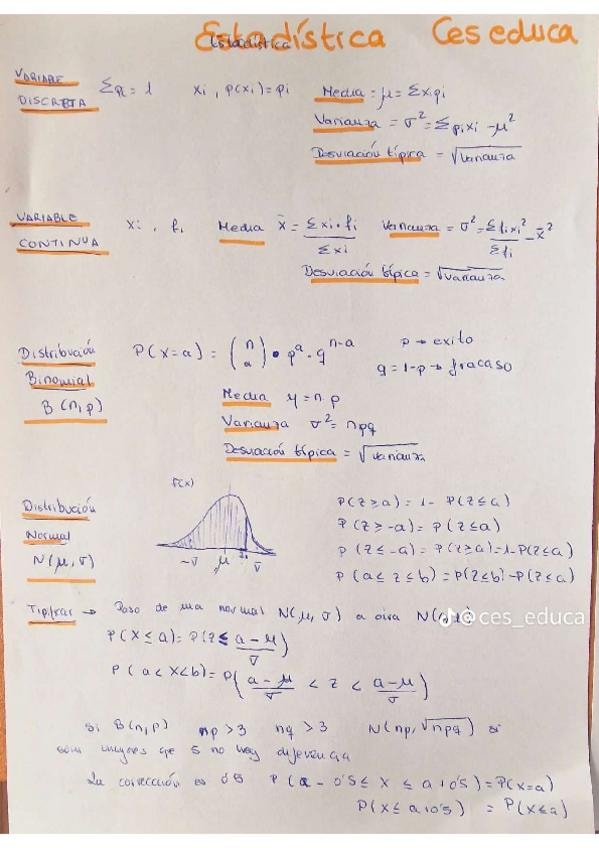 Estadística Ces educa
Estadística
VARIABLE DISCRETA Σpi = 1 xi , p(xi) = pi Media = μ = Σxipi
Varianza = σ² = Σpixi - μ²
Desviación típica = √varianza
VARIABLE CONTINUA xi , fi Media x̄ = Σxi·fi / Σxi Varianza = σ² = Σfixi² / Σfi - x̄²
Desviación típica = √varianza
Distribución Binomial B(n,p) P(X=a) = (n a) · p^a · q^(n-a) p → exito
q = 1-p → fracaso
Media μ = n·p
Varianza σ² = npq
Desviación típica = √varianza
Distribución Normal N(μ,σ) f(x) P(z≥a) = 1 - P(z≤a)
P(z≥-a) = P(z≤a)
P(z≤-a) = P(z≥a) = 1-P(z≤a)
P(a≤z≤b) = P(z≤b)-P(z≤a)
-σ μ σ
Tipificar → Paso de una normal N(μ,σ) a otra
@ces_educa
P(X≤a) = P(z≤ (a-μ)/σ)
P(a<X<b) = P((a-μ)/σ < z < (a-μ)/σ)
Si B(n,p) np>3 nq>3 N(np,√npq) si
son mayores que 5 no hay diferencia
La corrección es 0'5 P(a-0'5≤X≤a+0'5) = P(X=a)
P(X≤a+0'5) = P(X≤a)